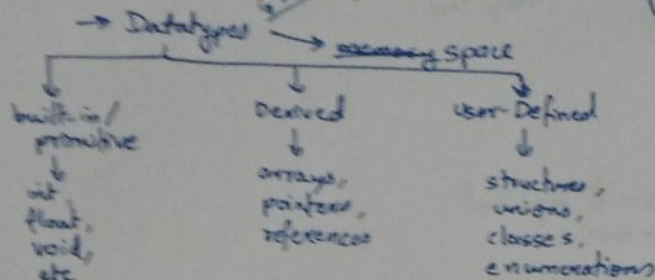 → Datatypes → memory space
built-in/
primitive
↓
int,
float,
void,
etc
Derived
↓
arrays,
pointers,
references
user-Defined
↓
structures,
unions,
classes,
enumerations